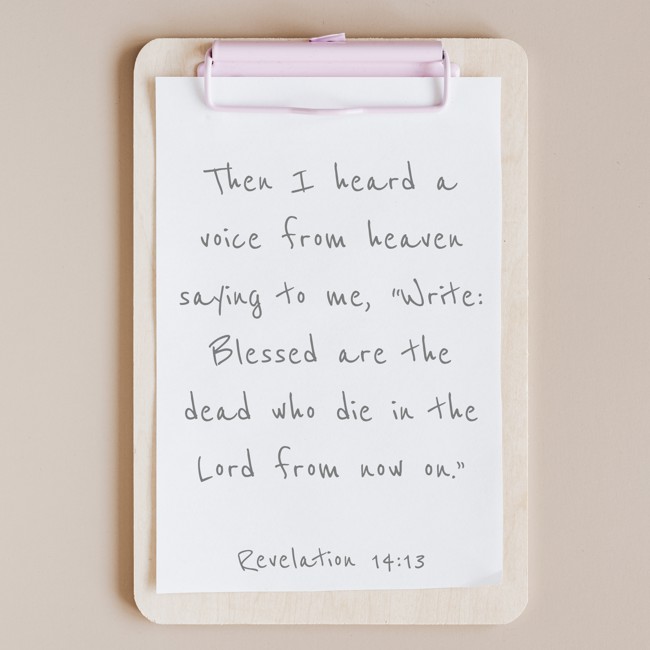 Then I heard a
voice from heaven
saying to me, "Write:
Blessed are the
dead who die in the
Lord from now on."
Revelation 14:13